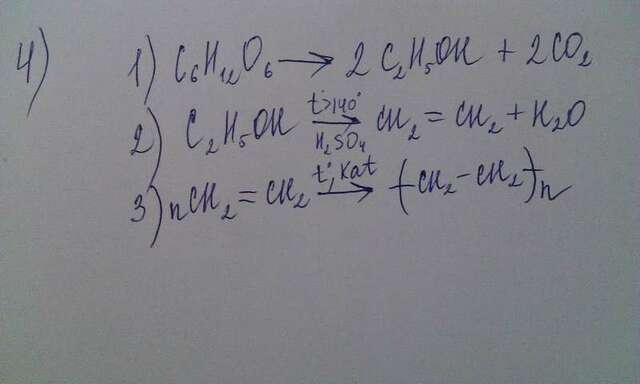 4) 1) C₆H₁₂O₆ → 2 C₂H₅OH + 2CO₂
2) C₂H₅OH t>140° → H₂SO₄ CH₂ = CH₂ + H₂O
3) nCH₂ = CH₂ t°, Kat → (–CH₂–CH₂–)n